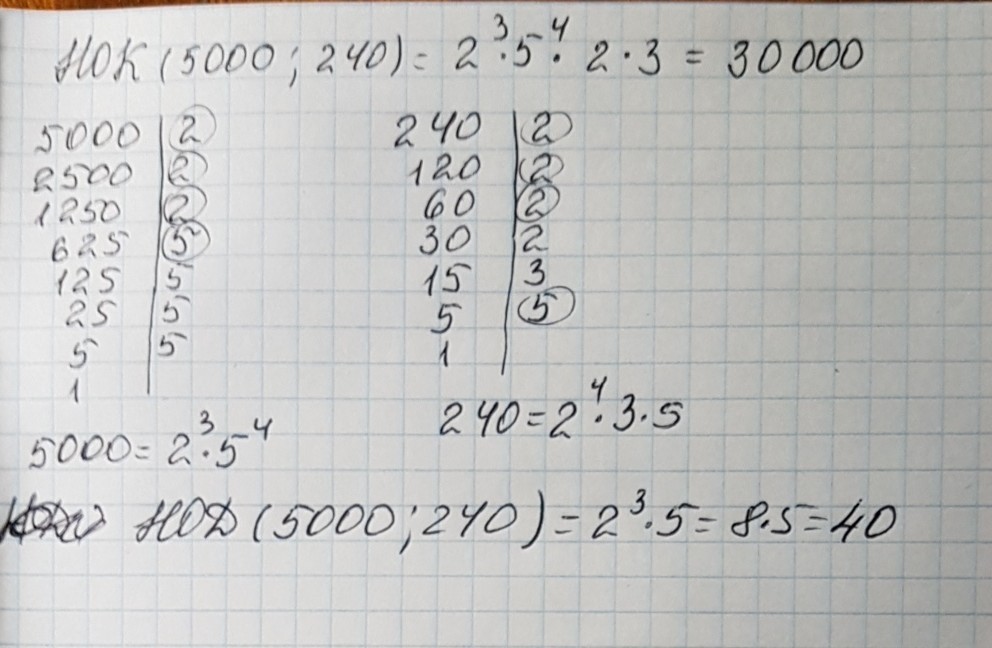 НОК (5000; 240) = 2³·5⁴·2·3 = 30000
5000 | 2
2500 | 2
1250 | 2
625 | 5
125 | 5
25 | 5
5 | 5
1
5000 = 2³·5⁴
240 | 2
120 | 2
60 | 2
30 | 2
15 | 3
5 | 5
1
240 = 2⁴·3·5
НОД (5000; 240) = 2³·5 = 8·5 = 40